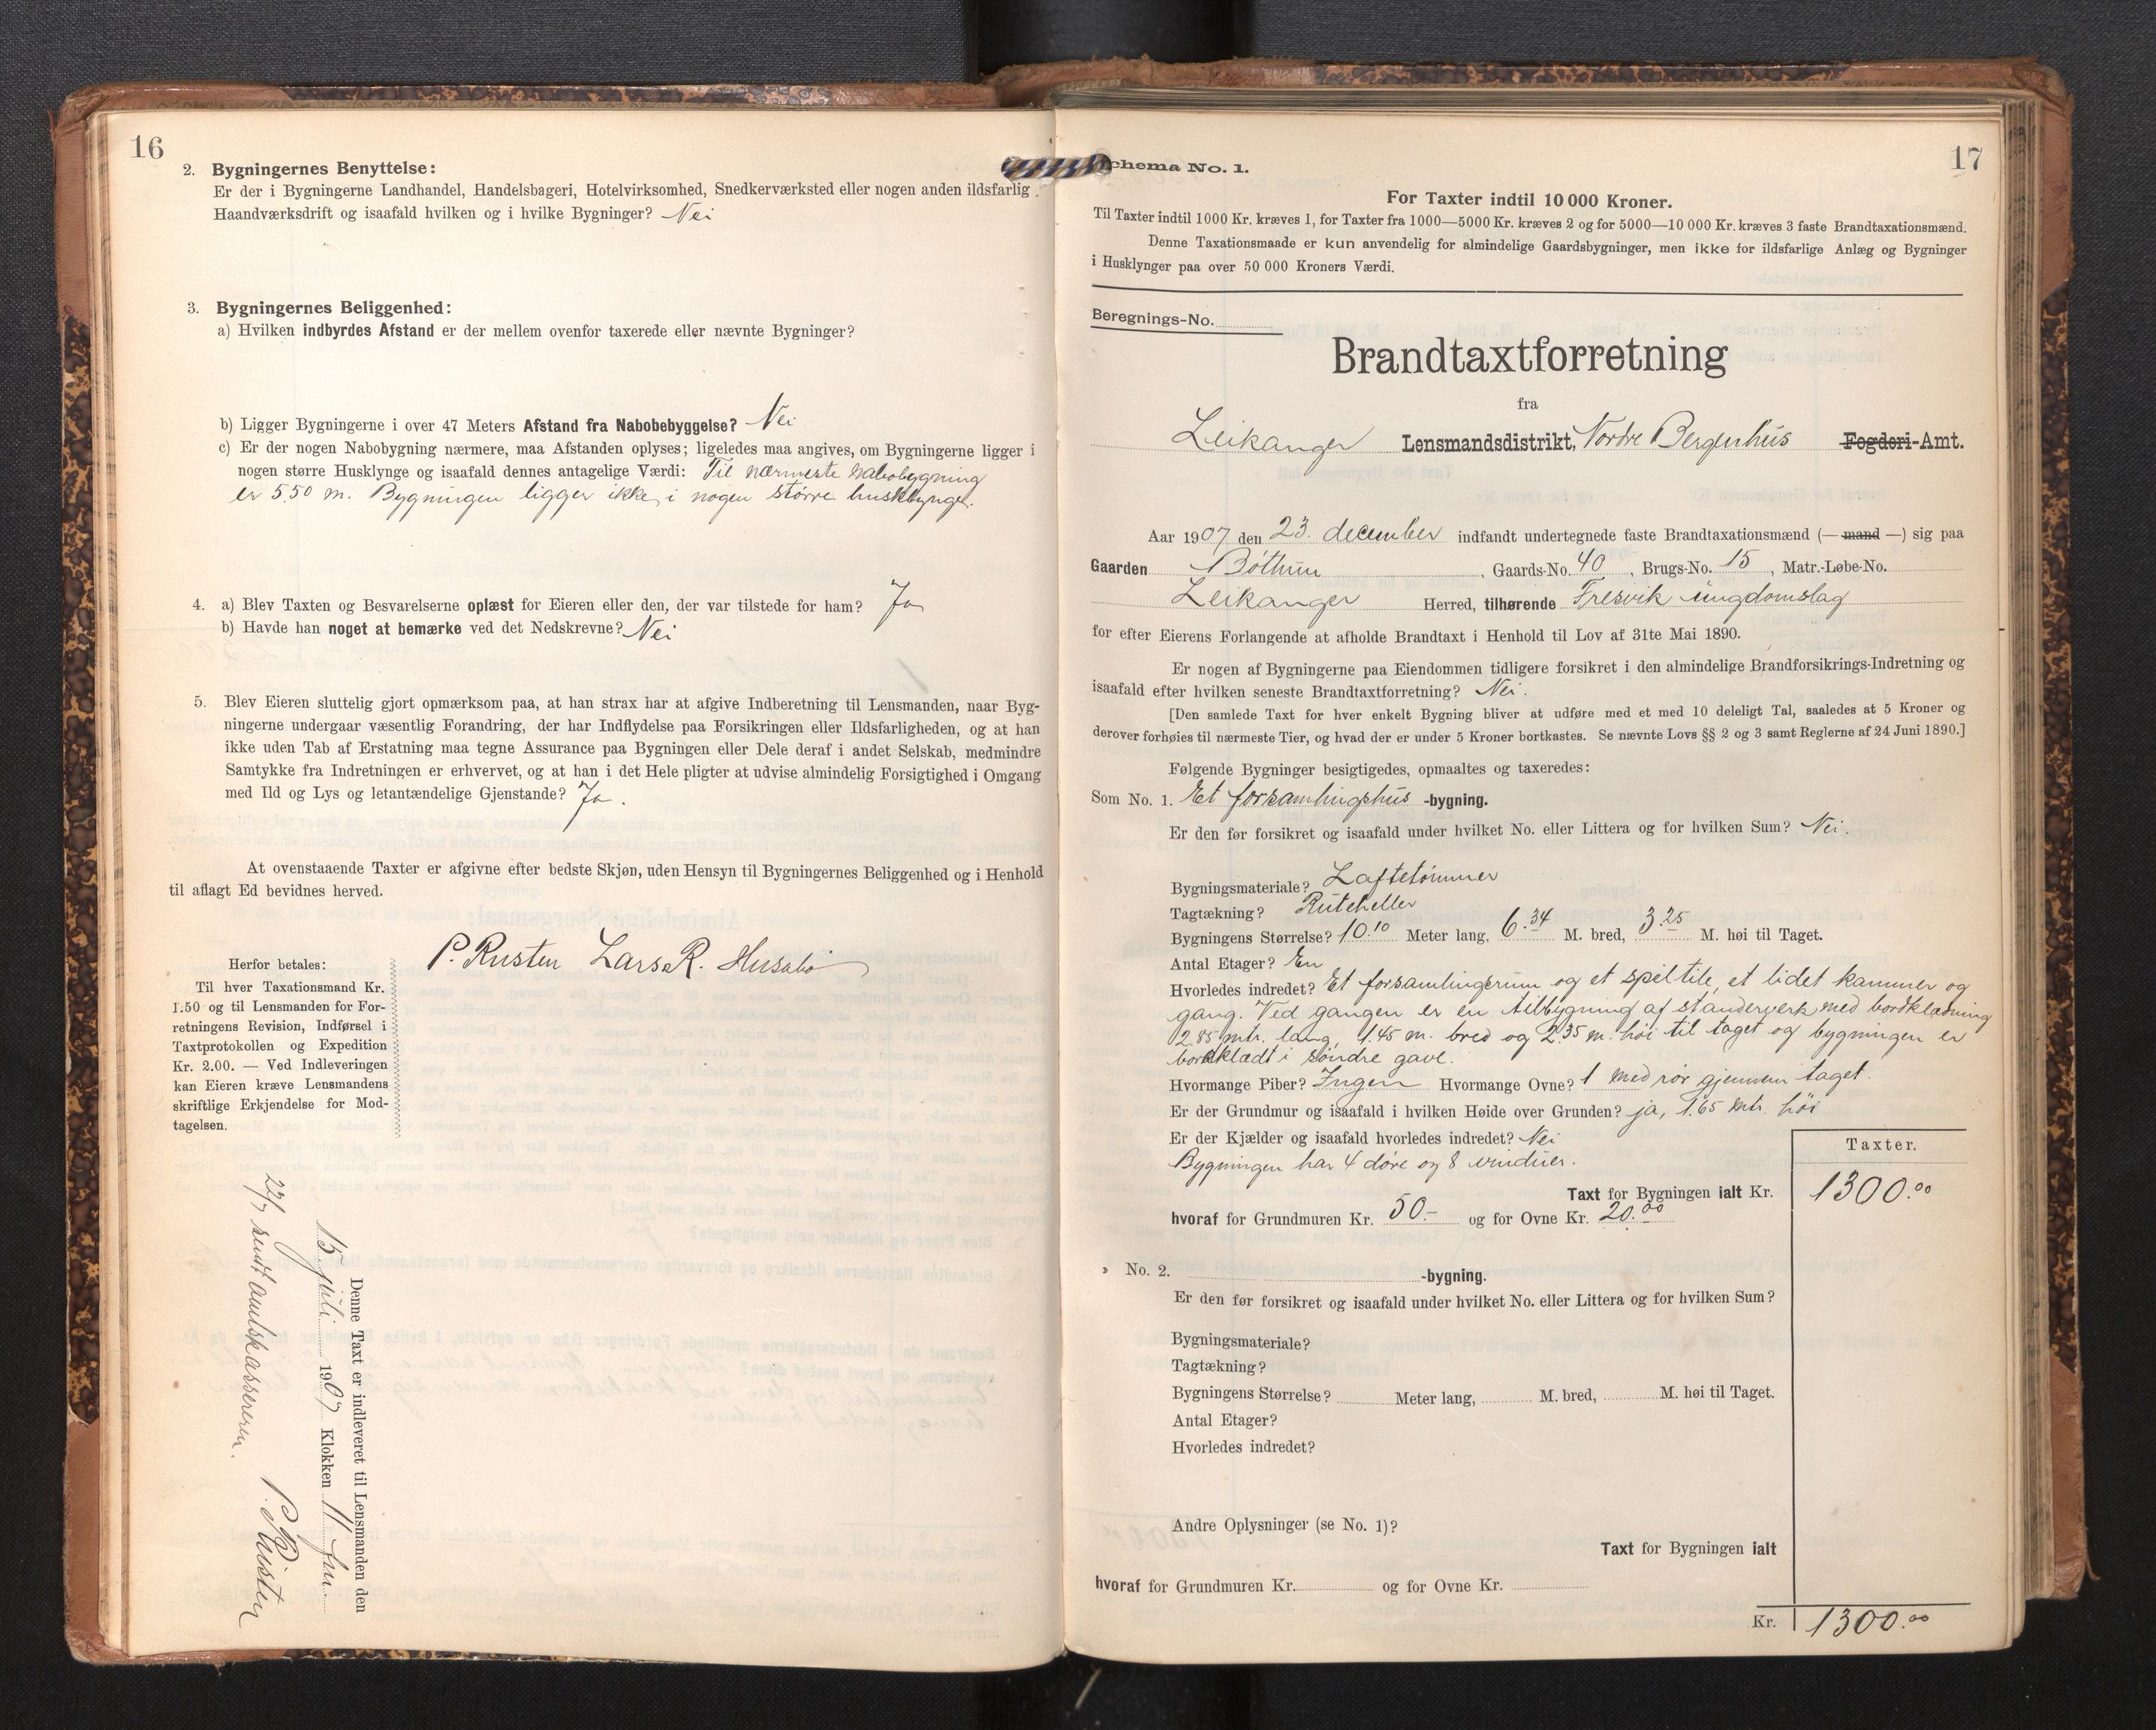 16
2. Bygningernes Benyttelse:
Er der i Bygningerne Landhandel, Handelsbageri, Hotelvirksomhed, Snedkerværksted eller nogen anden ildsfarlig
Haandværksdrift og isaafald hvilken og i hvilke Bygninger? Nei
3. Bygningernes Beliggenhed:
a) Hvilken indbyrdes Afstand er der mellem ovenfor taxerede eller nævnte Bygninger?
b) Ligger Bygningerne i over 47 Meters Afstand fra Nabobebyggelse? Nei
c) Er der nogen Nabobygning nærmere, maa Afstanden oplyses; ligeledes maa angives, om Bygningerne ligger i
nogen større Husklynge og isaafald dennes antagelige Værdi: Til nærmeste nabobygning
er 5.50 m. Bygningen ligger ikke i nogen større husklynge.
4. a) Blev Taxten og Besvarelserne oplæst for Eieren eller den, der var tilstede for ham? Ja
b) Havde han noget at bemærke ved det Nedskrevne? Nei
5. Blev Eieren sluttelig gjort opmærksom paa, at han strax har at afgive Indberetning til Lensmanden, naar Byg-
ningerne undergaar væsentlig Forandring, der har Indflydelse paa Forsikringen eller Ildsfarligheden, og at han
ikke uden Tab af Erstatning maa tegne Assurance paa Bygningen eller Dele deraf i andet Selskab, medmindre
Samtykke fra Indretningen er erhvervet, og at han i det Hele pligter at udvise almindelig Forsigtighed i Omgang
med Ild og Lys og letantændelige Gjenstande? Ja.
At ovenstaaende Taxter er afgivne efter bedste Skjøn, uden Hensyn til Bygningernes Beliggenhed og i Henhold
til aflagt Ed bevidnes herved.
P. Rusten Lars R. Husabø
Herfor betales:
Til hver Taxationsmand Kr.
1.50 og til Lensmanden for For-
retningens Revision, Indførsel i
Taxtprotokollen og Expedition
Kr. 2.00. — Ved Indleveringen
kan Eieren kræve Lensmandens
skriftlige Erkjendelse for Mod-
tagelsen.
Denne Taxt er indleveret til Lensmanden den
15 juli 1907 Klokken 11 fm.
22/7 sendt amtskassereren.
P. Rusten
17
Schema No. 1.
For Taxter indtil 10 000 Kroner.
Til Taxter indtil 1000 Kr. kræves 1, for Taxter fra 1000—5000 Kr. kræves 2 og for 5000—10 000 Kr. kræves 3 faste Brandtaxationsmænd.
Denne Taxationsmaade er kun anvendelig for almindelige Gaardsbygninger, men ikke for ildsfarlige Anlæg og Bygninger
i Husklynger paa over 50 000 Kroners Værdi.
Beregnings-No.
Brandtaxtforretning
fra
Leikanger Lensmandsdistrikt, Nordre Bergenhus Fogderi-Amt.
Aar 1907 den 23. december indfandt undertegnede faste Brandtaxationsmænd (— mand —) sig paa
Gaarden Bøthun, Gaards-No. 40, Brugs-No. 15, Matr.-Løbe-No.
Leikanger Herred, tilhørende Fresvik ungdomslag
for efter Eierens Forlangende at afholde Brandtaxt i Henhold til Lov af 31te Mai 1890.
Er nogen af Bygningerne paa Eiendommen tidligere forsikret i den almindelige Brandforsikrings-Indretning og
isaafald efter hvilken seneste Brandtaxtforretning? Nei.
[Den samlede Taxt for hver enkelt Bygning bliver at udføre med et med 10 deleligt Tal, saaledes at 5 Kroner og
derover forhøies til nærmeste Tier, og hvad der er under 5 Kroner bortkastes. Se nævnte Lovs §§ 2 og 3 samt Reglerne af 24 Juni 1890.]
Følgende Bygninger besigtigedes, opmaaltes og taxeredes:
Som No. 1. Et forsamlingshus -bygning.
Er den før forsikret og isaafald under hvilket No. eller Littera og for hvilken Sum? Nei.
Bygningsmateriale? Laftetømmer
Tagtækning? Ruteheller
Bygningens Størrelse? 10.10 Meter lang, 6.34 M. bred, 3.25 M. høi til Taget.
Antal Etager? En
Hvorledes indredet? Et forsamlingsrum og et speltile, et lidet kammer og
gang. Ved gangen er en tilbygning af standerverk med bordklædning
2.85 mtr. lang, 1.45 m. bred og 2.35 m. høi til taget og bygningen er
bordklædt i søndre gave.
Hvormange Piber? Ingen Hvormange Ovne? 1 med rør gjennem taget.
Er der Grundmur og isaafald i hvilken Høide over Grunden? ja, 1.65 mtr. høi
Er der Kjælder og isaafald hvorledes indredet? Nei
Bygningen har 4 døre og 8 vinduer.
Taxter.
Taxt for Bygningen ialt Kr. 1300.00
hvoraf for Grundmuren Kr. 50.- og for Ovne Kr. 20.00
No. 2. -bygning.
Er den før forsikret og isaafald under hvilket No. eller Littera og for hvilken Sum?
Bygningsmateriale?
Tagtækning?
Bygningens Størrelse? Meter lang, M. bred, M. høi til Taget.
Antal Etager?
Hvorledes indredet?
Andre Oplysninger (se No. 1)?
Taxt for Bygningen ialt
hvoraf for Grundmuren Kr. og for Ovne Kr.
Kr. 1300.00